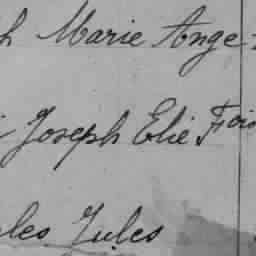 h Marie Ange
Joseph Elie Fois
les Jules